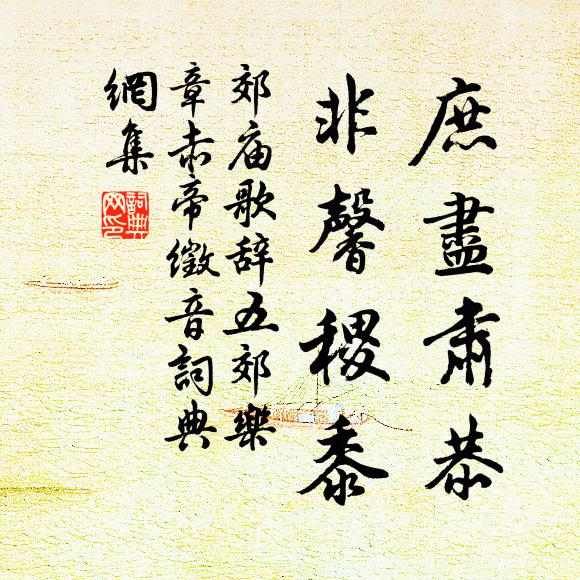 庶盡肅恭
非馨稷黍
郊庙歌辞五郊樂
章赤帝徵音詞典
網集
詞典
网印